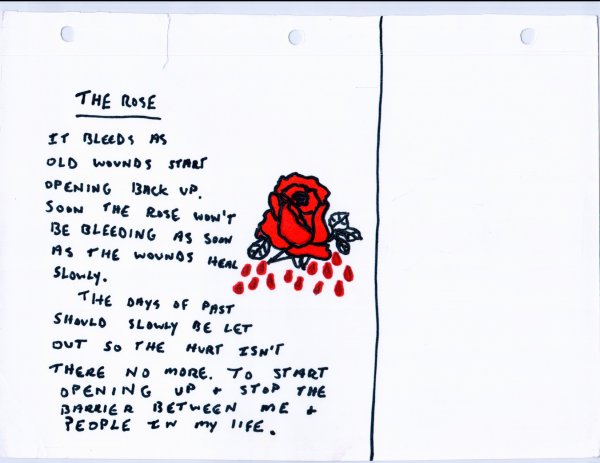 THE ROSE
IT BLEEDS AS
OLD WOUNDS START
OPENING BACK UP.
SOON THE ROSE WON'T
BE BLEEDING AS SOON
AS THE WOUNDS HEAL
SLOWLY.
THE DAYS OF PAST
SHOULD SLOWLY BE LET
OUT SO THE HURT ISN'T
THERE NO MORE. TO START
OPENING UP + STOP THE
BARRIER BETWEEN ME +
PEOPLE IN MY LIFE.